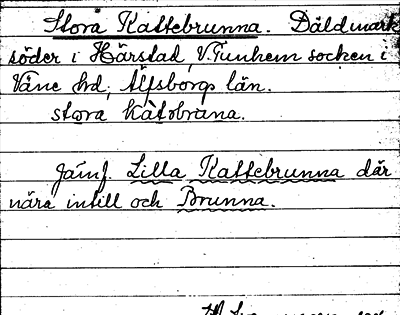 Stora Kattebrunna. Däldmark
söder i Härstad, V. Tunhem socken i
Väne hd, Älfsborgs län.
stora katobruna.
Jämf. Lilla Kattebrunna där
nära intill och Brunna.